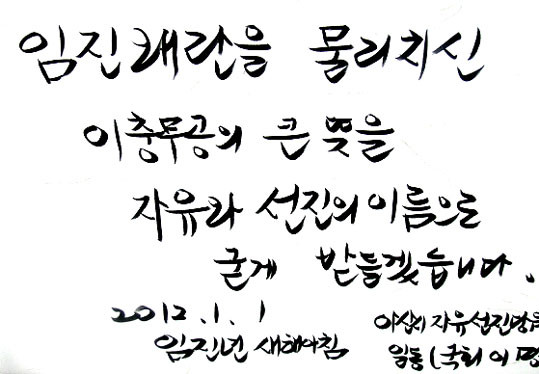 임진왜란을 물리치신
이충무공의 큰 뜻을
자유와 선진의 이름으로
굳게 받들겠습니다.
2012.1.1
임진년 새해아침
아산시 자유선진당
일동(국회 이명